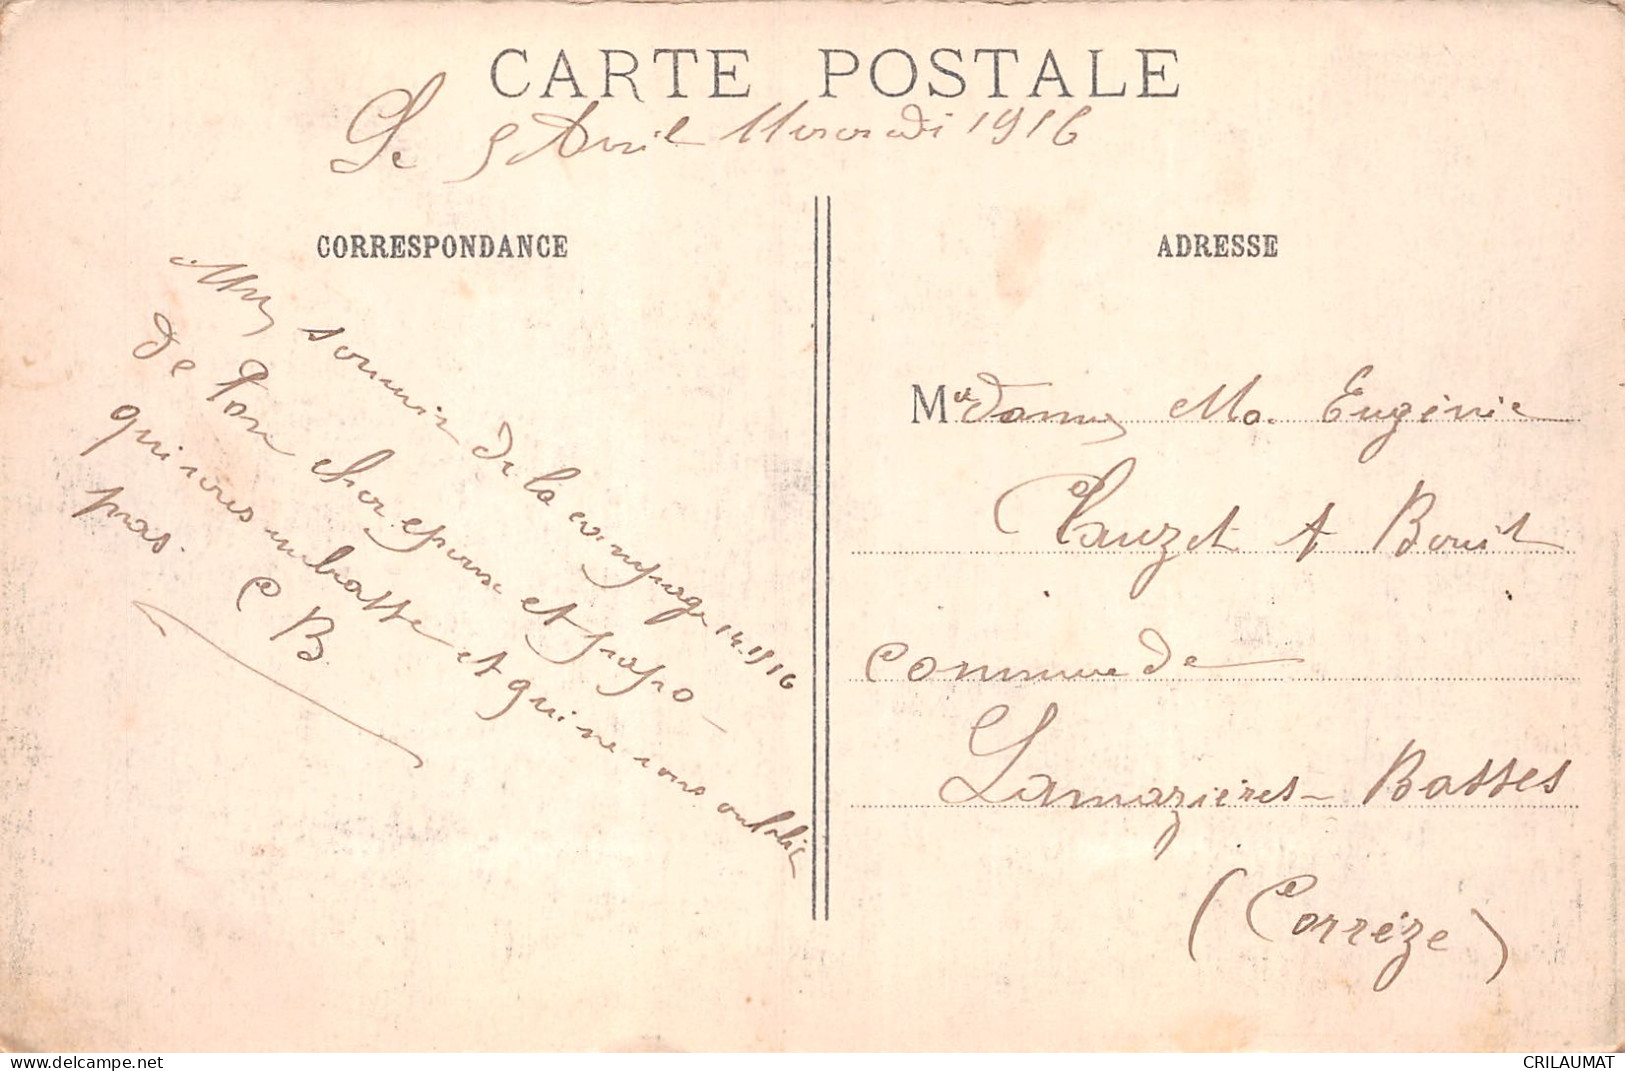 CARTE POSTALE
Le 5 Avril Mercredi 1916
CORRESPONDANCE
souvenir de la compagne 14.1916
de ton cher epoux et papa
qui vous embrasse et qui ne vous oublie
pas.
C B
ADRESSE
Madame Ma. Eugénie
Clauzet A Bouit
commune de
Lamazières-Basses
(Corrèze)
CRILAUMAT